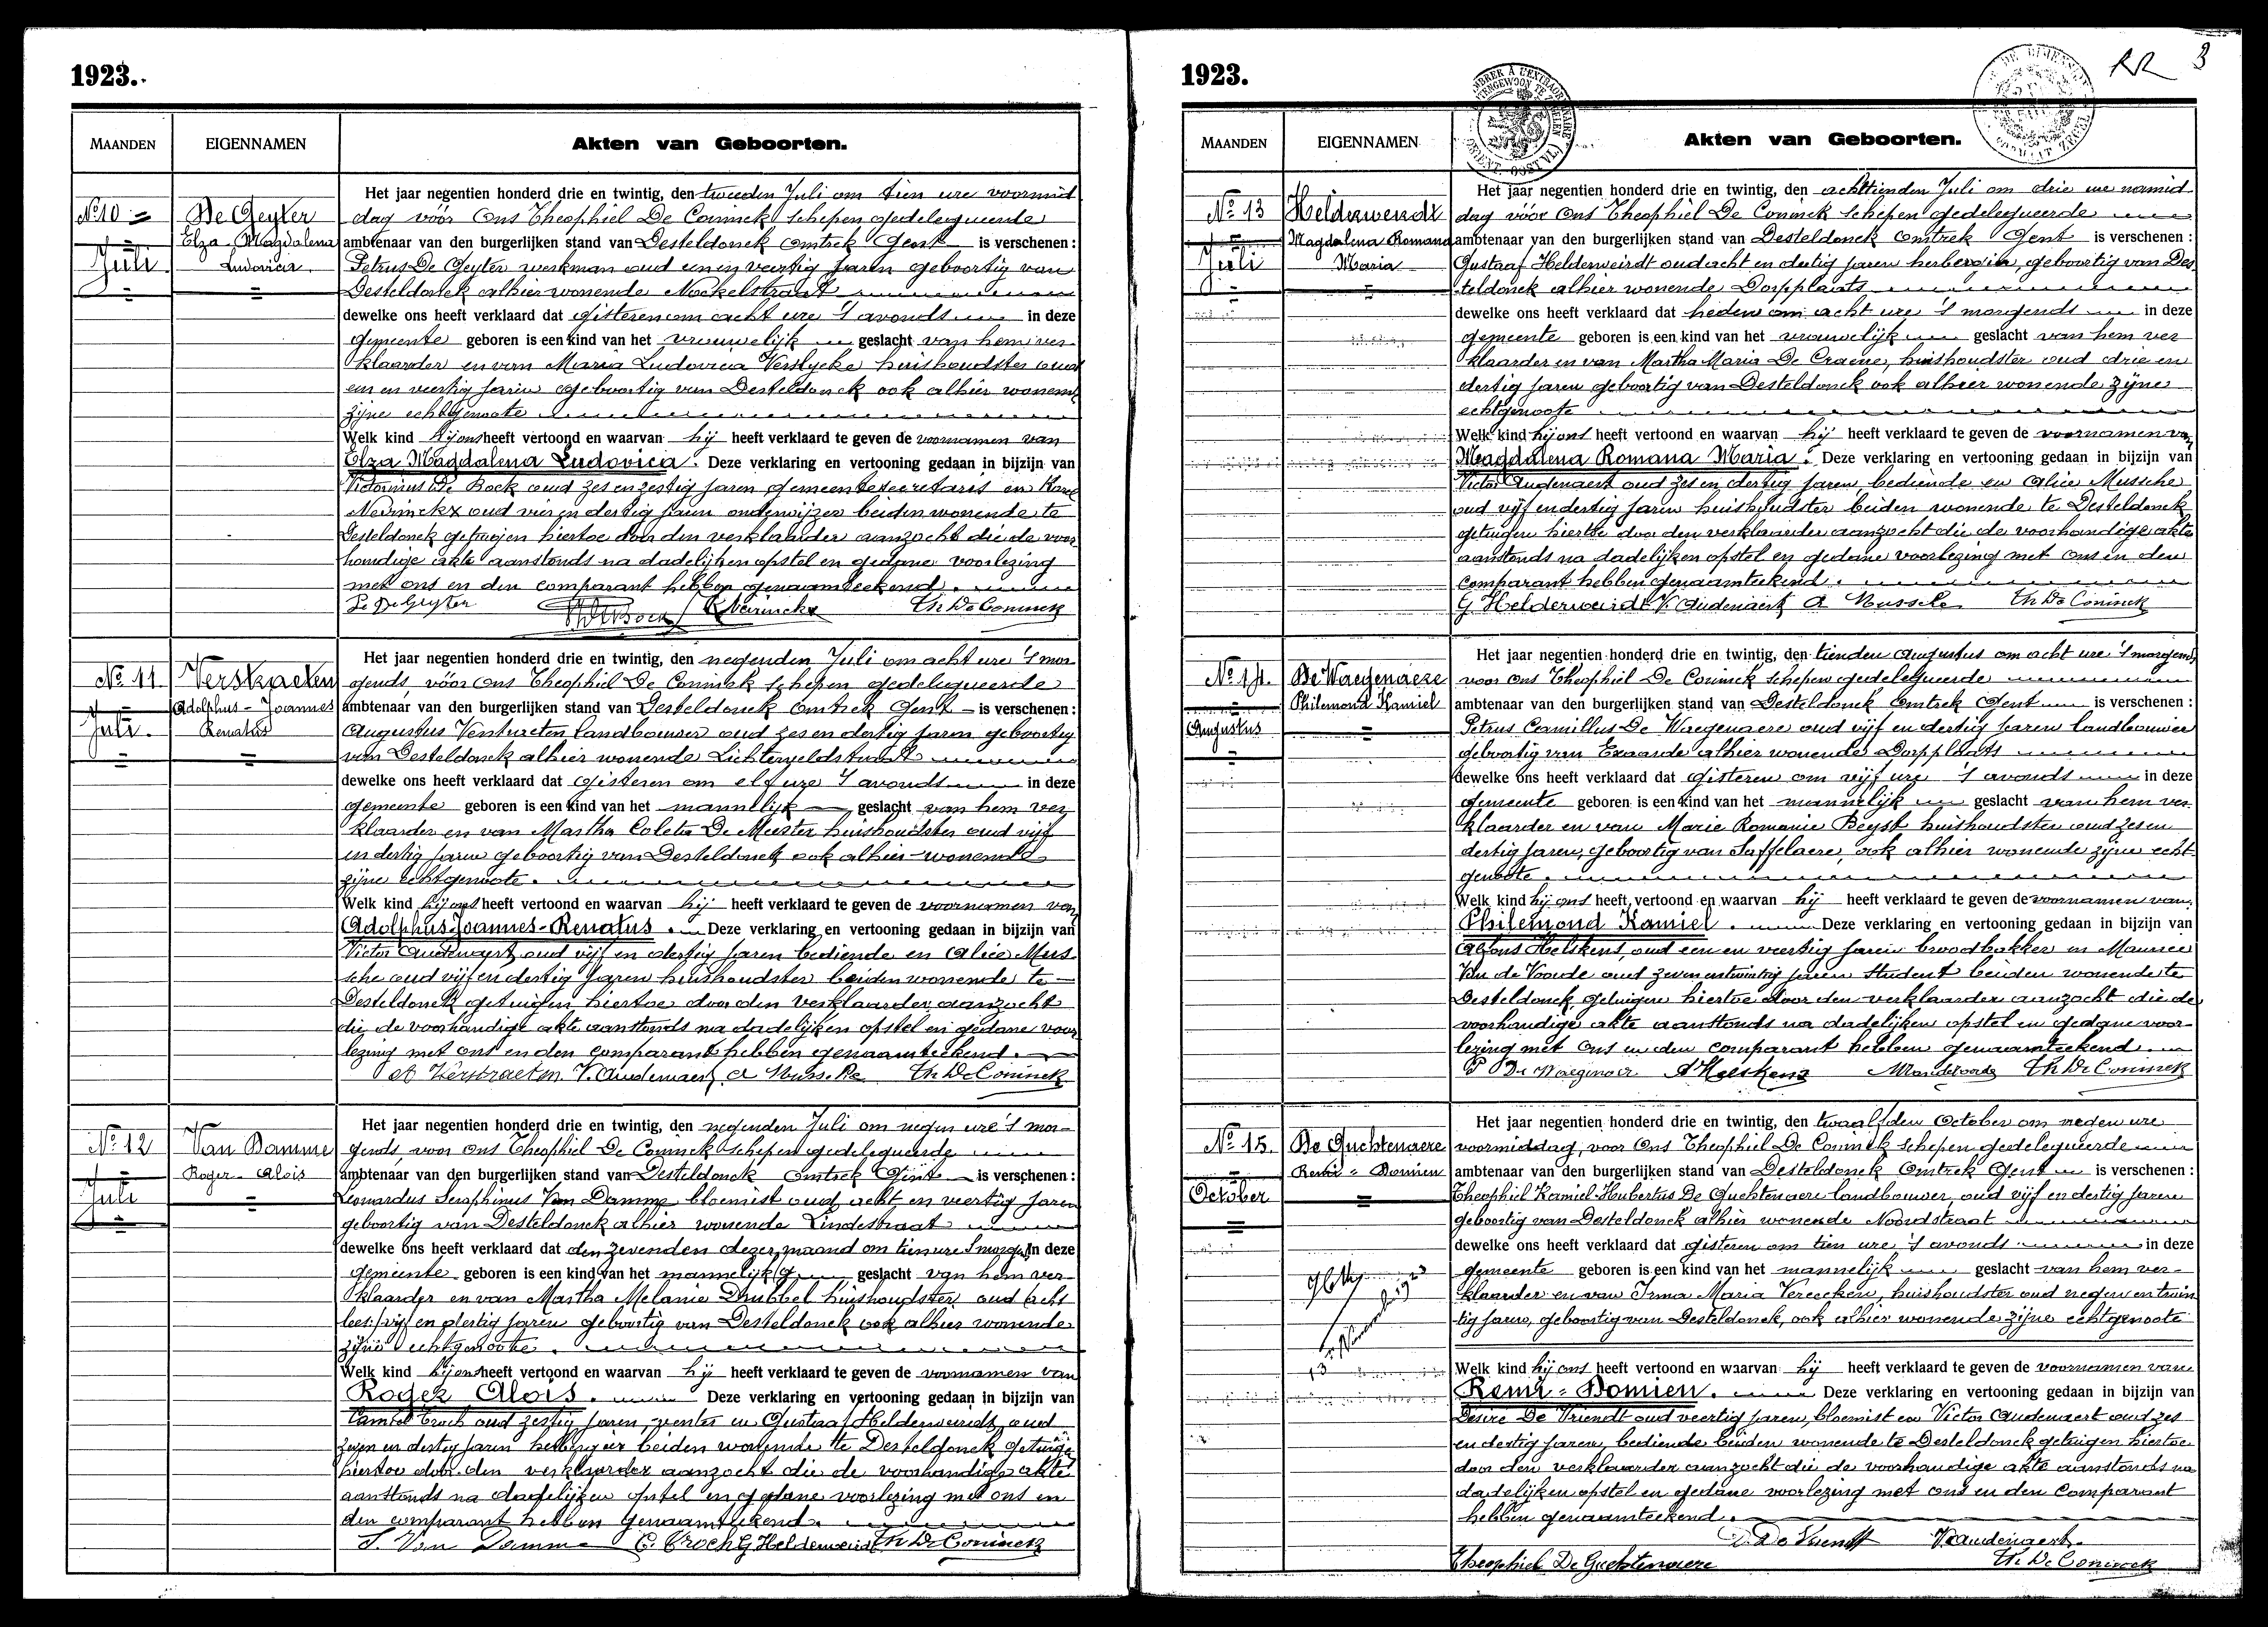 1923.
MAANDEN EIGENNAMEN Akten van Geboorten.
Nº 10 De Geyter Elza Magdalena Ludovica
Juli
Het jaar negentien honderd drie en twintig, den tweeden Juli om tien ure voormid
dag vóór Ons Theophiel De Coninck schepen gedelegueerde
ambtenaar van den burgerlijken stand van Desteldonck Omtrek Gent is verschenen :
Petrus De Geyter werkman oud een en veertig jaren geboortig van
Desteldonck alhier wonende Mockelstraat
dewelke ons heeft verklaard dat gisteren om acht ure 's avonds in deze
gemeente geboren is een kind van het vrouwelijk geslacht van hem ver
klaarder en van Maria Ludovica Verslycke huishoudster oud
een en veertig jaren geboortig van Desteldonck ook alhier wonende
zijne echtgenoote
Welk kind hij ons heeft vertoond en waarvan hij heeft verklaard te geven de voornamen van
Elza Magdalena Ludovica. Deze verklaring en vertooning gedaan in bijzijn van
Victorinus De Bock oud zes en zestig jaren gemeentesecretaris en Karel
Neirinckx oud vier en dertig jaren onderwijzer beiden wonende te
Desteldonck getuigen hiertoe door den verklaarder aanzocht die de voor
handige akte aanstonds na dadelijken opstel en gedane voorlezing
met ons en den comparant hebben genaamteekend.
P. De Geyter De Bock K Neirinckx Th De Coninck
Nº 11 Verstraeten Adolphus-Joannes Renatus
Juli.
Het jaar negentien honderd drie en twintig, den negenden Juli om acht ure 's mor
gends, vóór Ons Theophiel De Coninck schepen gedelegueerde
ambtenaar van den burgerlijken stand van Desteldonck Omtrek Gent is verschenen :
Augustus Verstraeten landbouwer oud zes en dertig jaren geboortig
van Desteldonck alhier wonende Lichterveldstraat
dewelke ons heeft verklaard dat gisteren om elf ure 's avonds in deze
gemeente geboren is een kind van het mannelijk geslacht van hem ver
klaarder en van Martha Coleta De Meester huishoudster oud vijf
en dertig jaren geboortig van Desteldonck ook alhier wonende
zijne echtgenoote.
Welk kind hij ons heeft vertoond en waarvan hij heeft verklaard te geven de voornamen van
Adolphus-Joannes-Renatus. Deze verklaring en vertooning gedaan in bijzijn van
Victor Audenaert oud vijf en dertig jaren bediende en Alice Mus
sche oud vijf en dertig jaren huishoudster beiden wonende te
Desteldonck getuigen hiertoe door den verklaarder aanzocht
die de voorhandige akte aanstonds na dadelijken opstel en gedane voor
lezing met ons en den comparant hebben genaamteekend.
A Verstraeten V. Audenaert A Mussche Th De Coninck
Nº 12 Van Damme Roger-Alois
Juli
Het jaar negentien honderd drie en twintig, den negenden Juli om negen ure 's mor-
gends, voor ons Theophiel De Coninck schepen gedelegueerde
ambtenaar van den burgerlijken stand van Desteldonck Omtrek Gent is verschenen :
Leonardus Seraphinus Van Damme bloemist oud acht en veertig jaren
geboortig van Desteldonck alhier wonende Lindestraat
dewelke ons heeft verklaard dat den zevenden dezer maand om tien ure 's morgens in deze
gemeente geboren is een kind van het mannelijk geslacht van hem ver-
klaarder en van Martha Melanie Dhubbel huishoudster oud acht
lees: vijf en dertig jaren geboortig van Desteldonck ook alhier wonende
zijne echtgenoote.
Welk kind hij ons heeft vertoond en waarvan hij heeft verklaard te geven de voornamen van
Roger Alois. Deze verklaring en vertooning gedaan in bijzijn van
Camiel Troch oud zestig jaren, rentier en Gustaaf Helderweirdt oud
zeven en dertig jaren herbergier beiden wonende te Desteldonck getuigen
hiertoe door den verklaarder aanzocht die de voorhandige akte
aanstonds na dadelijken opstel en gedane voorlezing met ons en
den comparant hebben genaamteekend.
S. Van Damme C. Troch G Helderweirdt Th De Coninck
1923.
RR 3
MAANDEN EIGENNAMEN Akten van Geboorten.
Nº 13 Helderweirdt Magdalena Romana Maria
Juli
Het jaar negentien honderd drie en twintig, den achttienden Juli om drie ure namid
dag vóór Ons Theophiel De Coninck schepen gedelegueerde
ambtenaar van den burgerlijken stand van Desteldonck Omtrek Gent is verschenen :
Gustaaf Helderweirdt oud acht en dertig jaren herbergier, geboortig van Des
teldonck alhier wonende Dorpplaats
dewelke ons heeft verklaard dat heden om acht ure 's morgends in deze
gemeente geboren is een kind van het vrouwelijk geslacht van hem ver
klaarder en van Martha Maria De Craene, huishoudster oud drie en
dertig jaren geboortig van Desteldonck ook alhier wonende zijne
echtgenoote
Welk kind hij ons heeft vertoond en waarvan hij heeft verklaard te geven de voornamen van
Magdalena Romana Maria. Deze verklaring en vertooning gedaan in bijzijn van
Victor Audenaert oud zes en dertig jaren, bediende en Alice Mussche
oud vijf en dertig jaren huishoudster beiden wonende te Desteldonck
getuigen hiertoe door den verklaarder aanzocht die de voorhandige akte
aanstonds na dadelijken opstel en gedane voorlezing met ons en den
comparant hebben genaamteekend.
G. Helderweirdt V. Audenaert A Mussche Th De Coninck
Nº 14. De Waegenaere Philemond Kamiel
Augustus
Het jaar negentien honderd drie en twintig, den tienden Augustus om acht ure 's morgends
voor Ons Theophiel De Coninck schepen gedelegueerde
ambtenaar van den burgerlijken stand van Desteldonck Omtrek Gent is verschenen :
Petrus Camillus De Waegenaere oud vijf en dertig jaren landbouwer
geboortig van Exaarde alhier wonende Dorpplaats
dewelke ons heeft verklaard dat gisteren om vijf ure 's avonds in deze
gemeente geboren is een kind van het mannelijk geslacht van hem ver
klaarder en van Marie Romanie Beyst huishoudster oud zes en
dertig jaren, geboortig van Saffelaere, ook alhier wonende zijne echt
genoote.
Welk kind hij ons heeft vertoond en waarvan hij heeft verklaard te geven de voornamen van
Philemond Kamiel. Deze verklaring en vertooning gedaan in bijzijn van
Alfons Helskens, oud een en veertig jaren broodbakker en Maurice
Van de Voorde oud zeven en twintig jaren student beiden wonende te
Desteldonck getuigen hiertoe door den verklaarder aanzocht die de
voorhandige akte aanstonds na dadelijken opstel en gedane voor
lezing met Ons en den comparant hebben genaamteekend.
P De Waegenaer A Helskens M Vandevoorde Th De Coninck
Nº 15. De Guchtenaere Remi-Domien
October
13 November 1923
Het jaar negentien honderd drie en twintig, den twaalfden October om negen ure
voormiddag, voor Ons Theophiel De Coninck schepen gedelegueerde
ambtenaar van den burgerlijken stand van Desteldonck Omtrek Gent is verschenen :
Theophiel Kamiel Hubertus De Guchtenaere landbouwer, oud vijf en dertig jaren
geboortig van Desteldonck alhier wonende Noordstraat
dewelke ons heeft verklaard dat gisteren om tien ure 's avonds in deze
gemeente geboren is een kind van het mannelijk geslacht van hem ver-
klaarder en van Irma Maria Vereecken, huishoudster oud negen en twin
tig jaren, geboortig van Desteldonck, ook alhier wonende zijne echtgenoote
Welk kind hij ons heeft vertoond en waarvan hij heeft verklaard te geven de voornamen van
Remi-Domien. Deze verklaring en vertooning gedaan in bijzijn van
Desire De Vriendt oud veertig jaren, bloemist en Victor Audenaert oud zes
en dertig jaren, bediende beiden wonende te Desteldonck getuigen hiertoe
door den verklaarder aanzocht die de voorhandige akte aanstonds na
dadelijken opstel en gedane voorlezing met ons en den comparant
hebben genaamteekend.
D. De Vriendt V Audenaert.
Theophiel De Guchtenaere Th. De Coninck